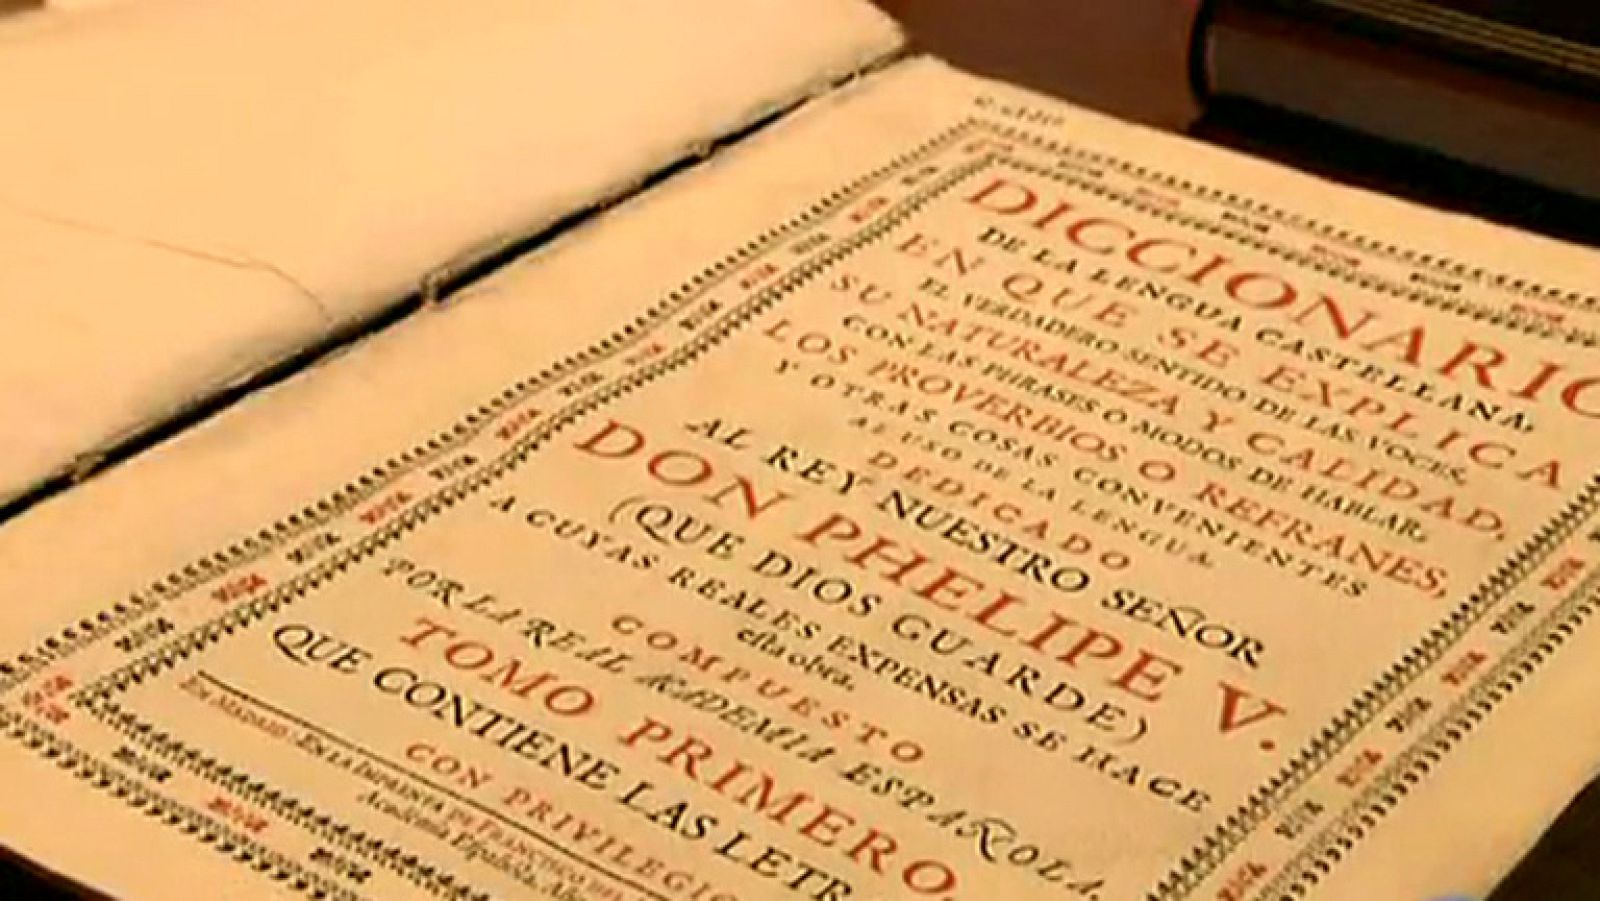 DICCIONARIO
DE LA LENGUA CASTELLANA,
EN QUE SE EXPLICA
EL VERDADERO SENTIDO DE LAS VOCES,
SU NATURALEZA Y CALIDAD,
CON LAS PHRASES O MODOS DE HABLAR,
LOS PROVERBIOS O REFRANES,
Y OTRAS COSAS CONVENIENTES
AL USO DE LA LENGUA.
DEDICADO
AL REY NUESTRO SEÑOR
DON PHELIPE V.
(QUE DIOS GUARDE)
A CUYAS REALES EXPENSAS SE HACE
esta obra.
COMPUESTO
POR LA REAL ACADEMIA ESPAÑOLA.
TOMO PRIMERO.
QUE CONTIENE LAS LETR
CON PRIVILEGIO
EN MADRID: EN LA IMPRENTA DE FRANCISCO DEL
Academia Española, Año